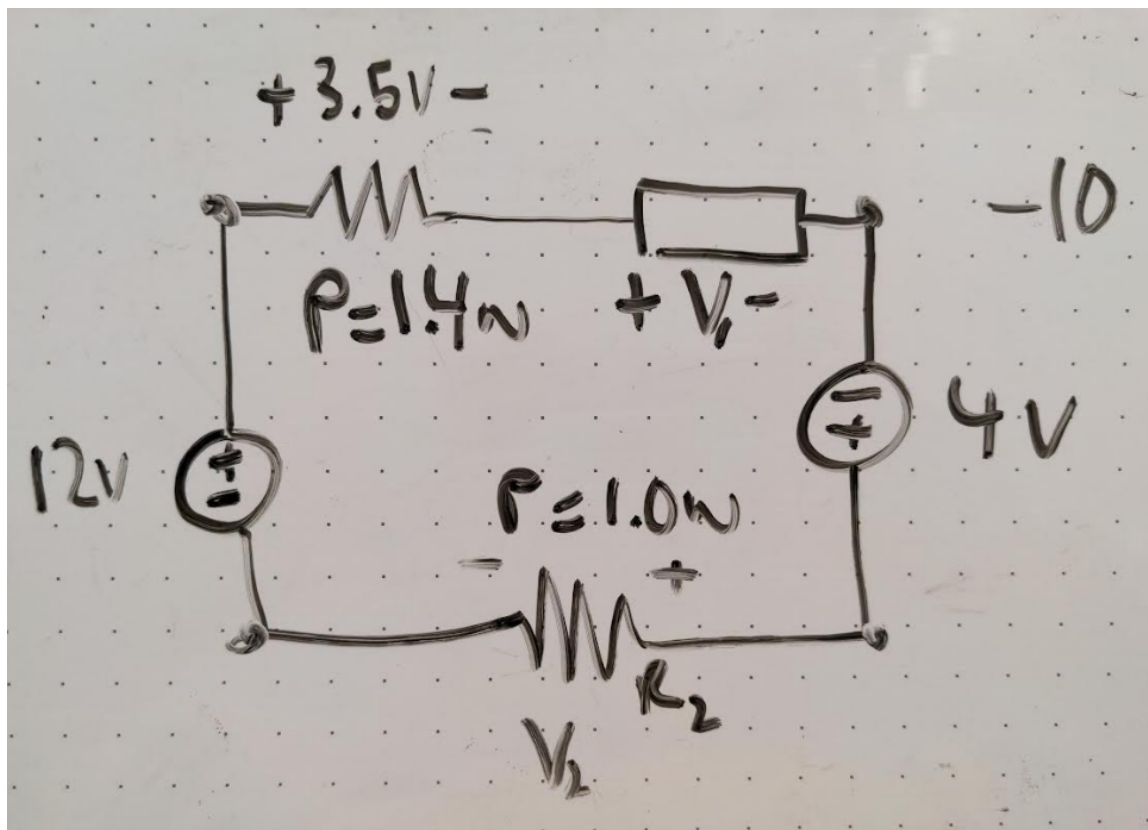 + 3.5V -
-10
P=1.4W
+ V1 -
12V
+
-
-
+
4V
P=1.0W
-
+
R2
V2